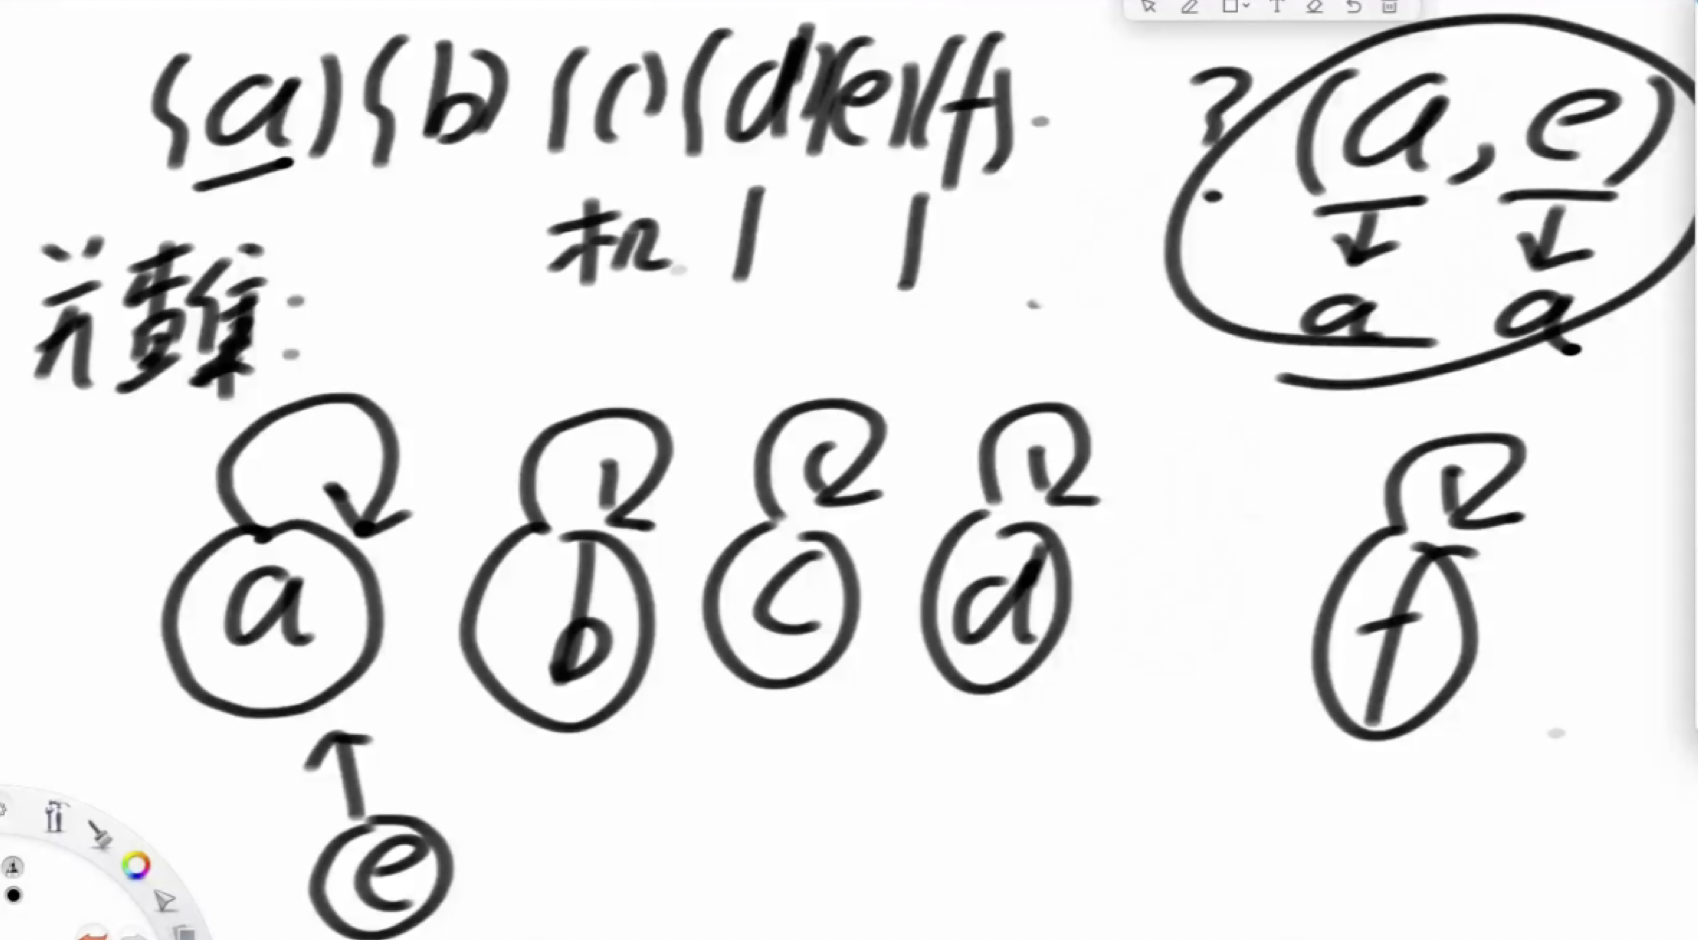 {a} {b} {c} {d} {e} {f}
? (a, e)
a a
a b c d f
e